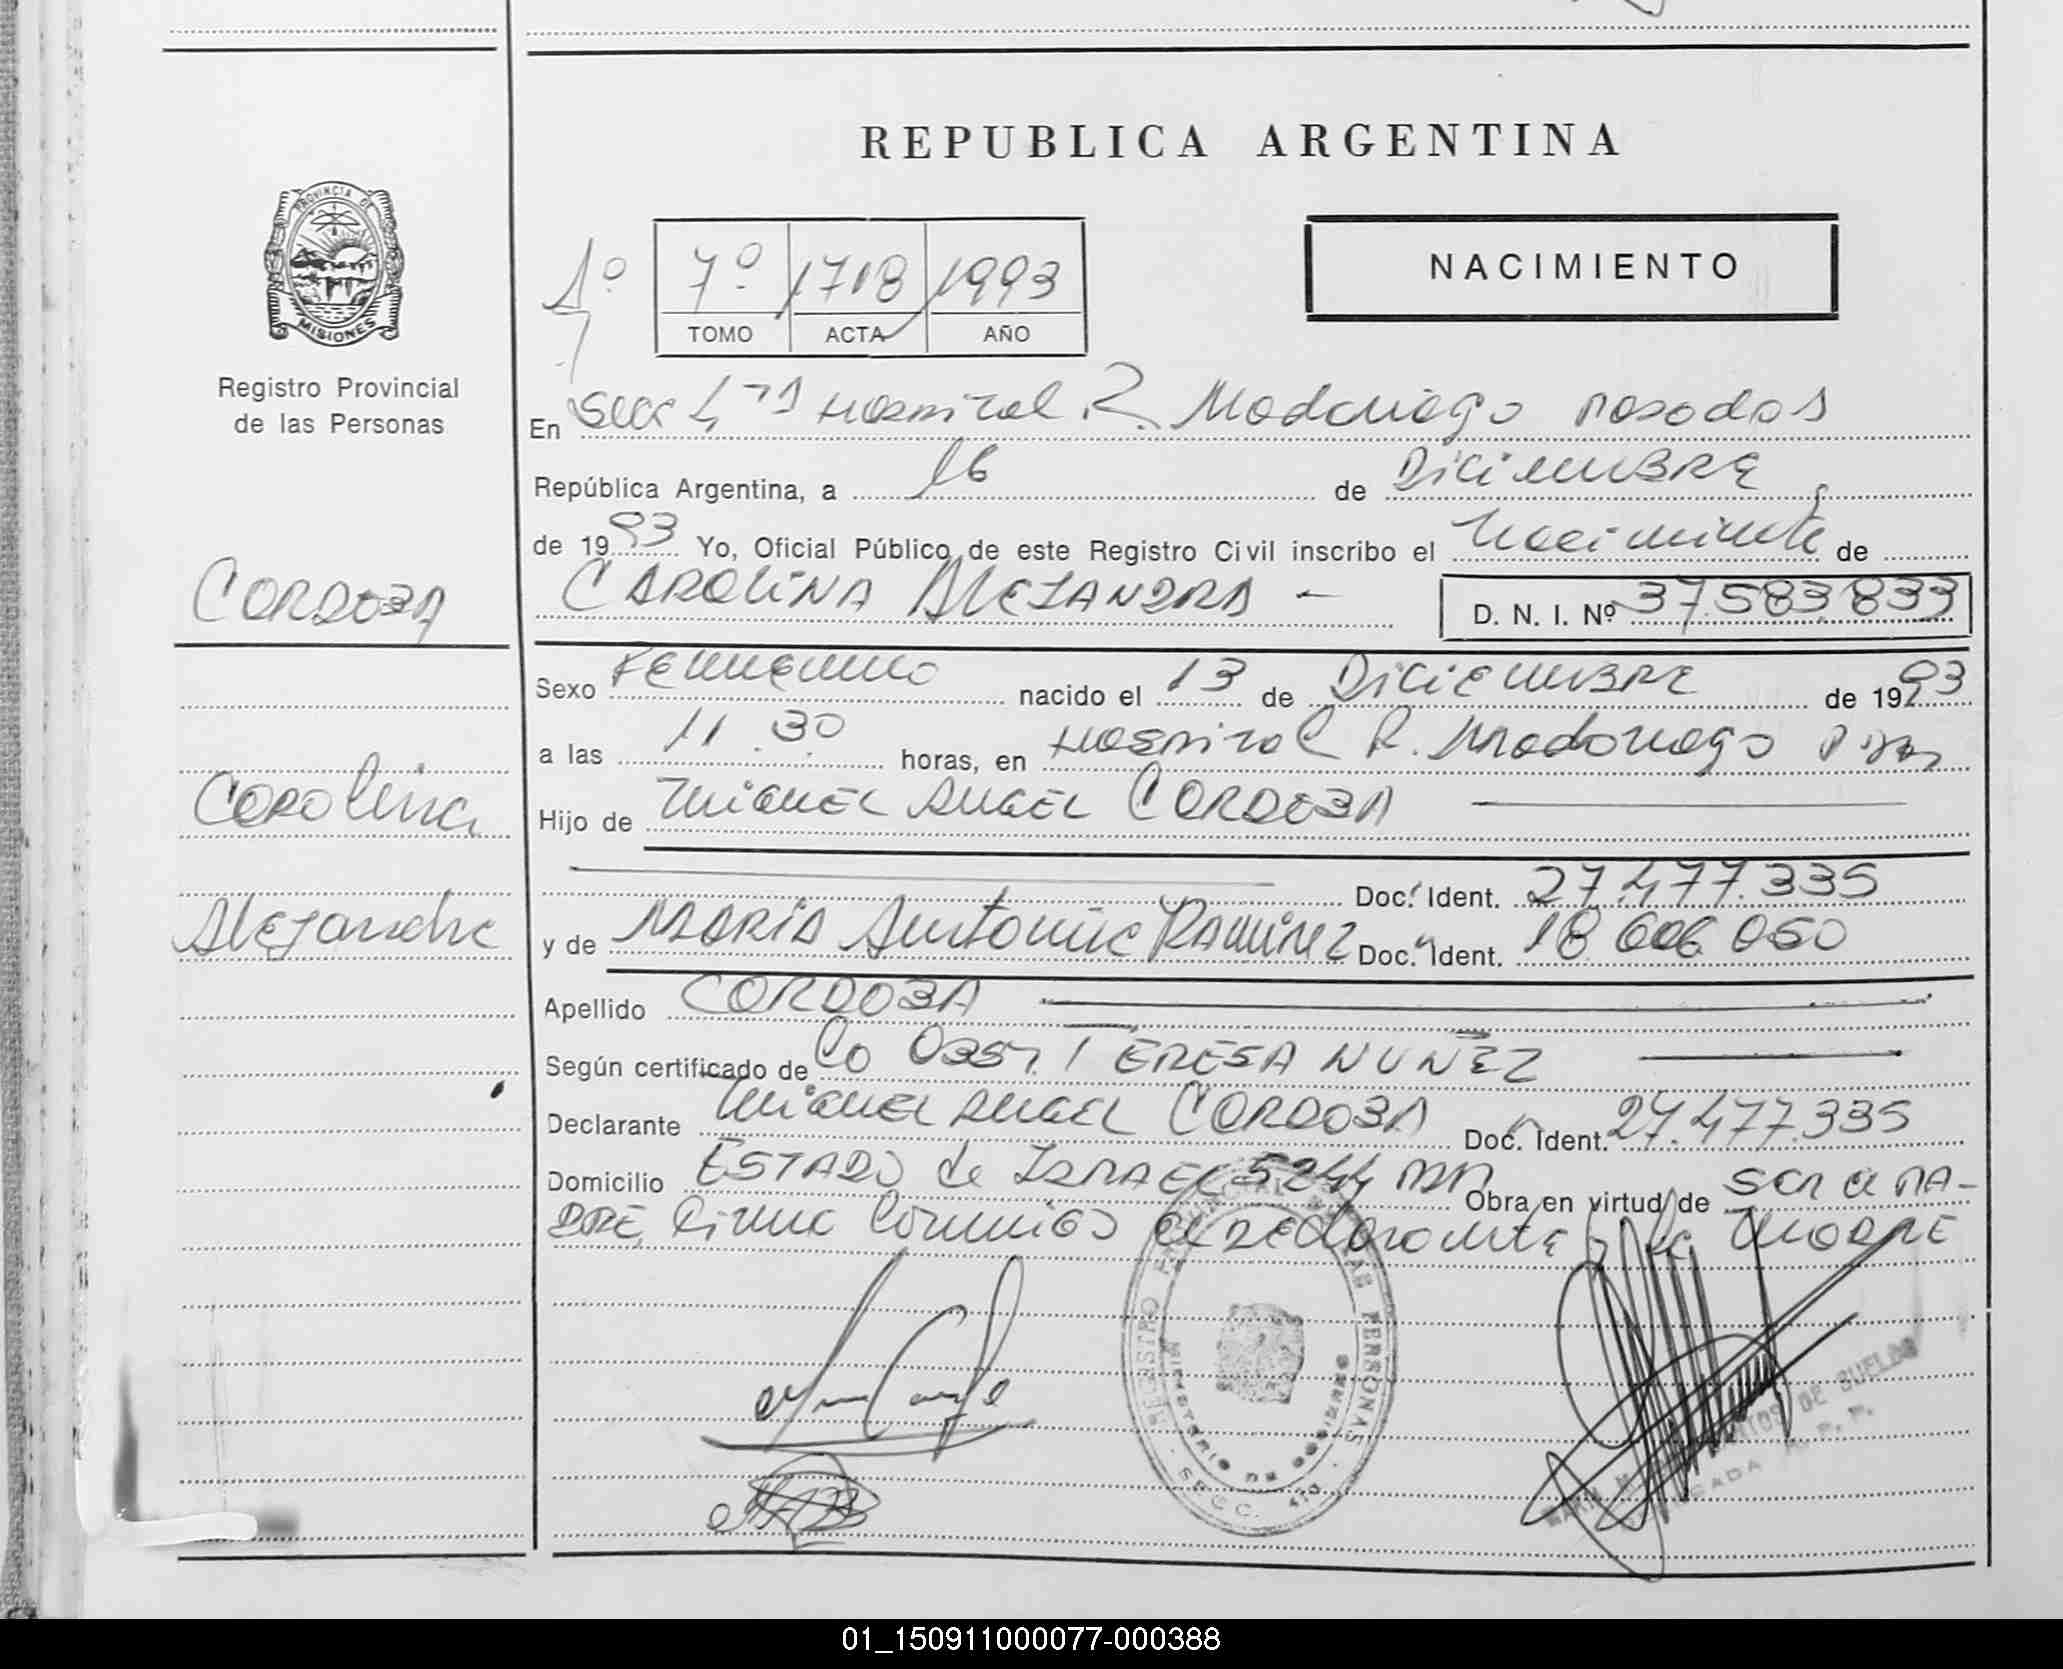 REPUBLICA ARGENTINA
PROVINCIA DE
MISIONES
Registro Provincial
de las Personas
NACIMIENTO
1º 7º 1718 1993
TOMO ACTA AÑO
En Secc 4ta Hospital R. Madariaga Posadas
República Argentina, a 16 de DiciEmBRE
de 1993 Yo, Oficial Público de este Registro Civil inscribo el Nacimiento de
CAROLINA ALEJANDRA — D. N. I. Nº 37.583.833
CORDOBA
Sexo FEmEnino nacido el 13 de DiciEmBRE de 1993
a las 11.30 horas, en Hospital R. Madariaga Pdas
Carolina
Hijo de MIGUEL ANGEL CORDOBA
Doc. Ident. 27.477.335
Alejandra
y de MARIA Antonia RAMIREZ Doc. Ident. 18.606.050
Apellido CORDOBA
Según certificado de Co Obst. TERESA NUÑEZ
Declarante MIGUEL ANGEL CORDOBA Doc. Ident. 27.477.335
Domicilio ESTADO de ISRAEL 5244 Obra en virtud de SER el PA-
DRE, Firma Conmigo el DEClaranTE y la MADRE
REGISTRO PROVINCIAL DE LAS PERSONAS
MINISTERIO DE GOBIERNO
SECC. 4ta
DE SUELOS
01_150911000077-000388